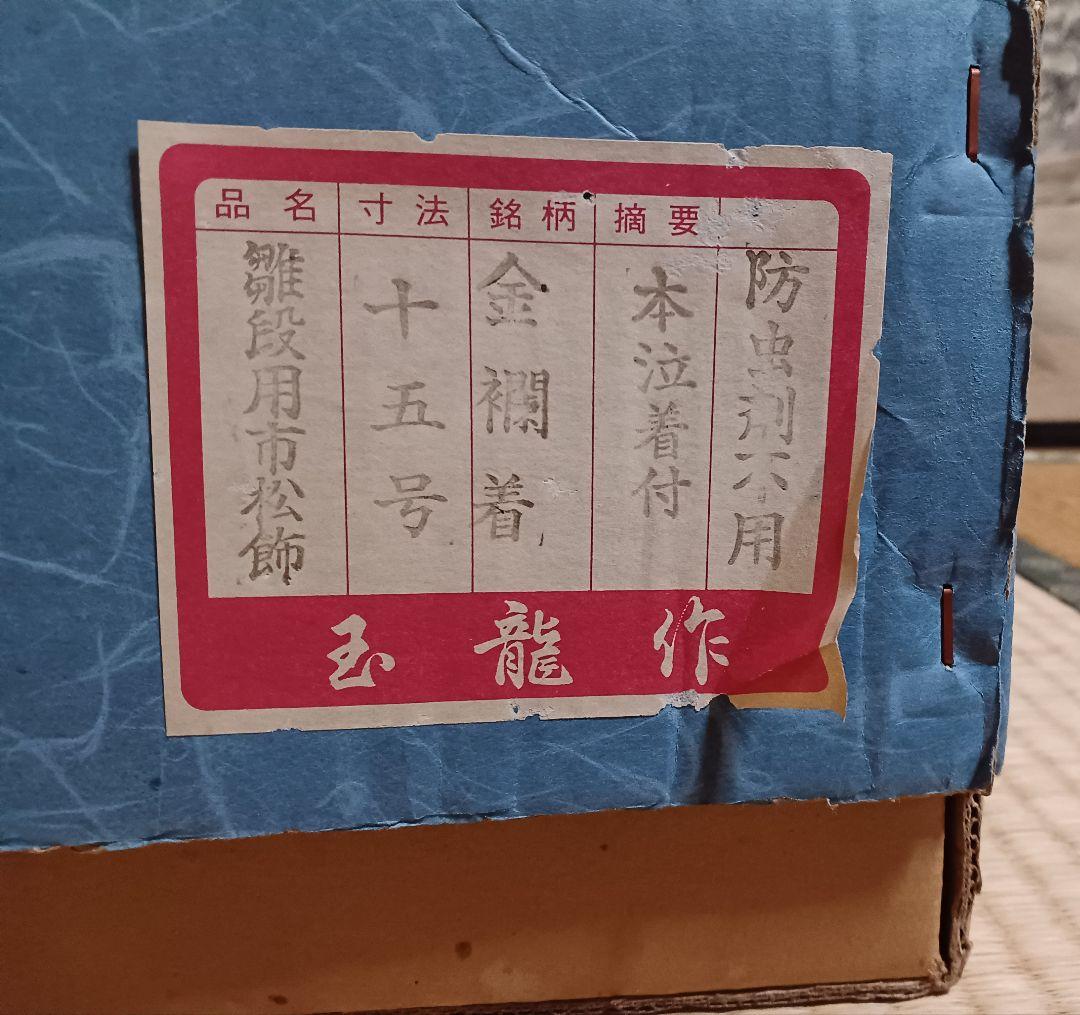 品名
寸法
銘柄
摘要
雛段用市松飾
十五号
金襴着
本泣着付
防虫剤不用
玉龍作